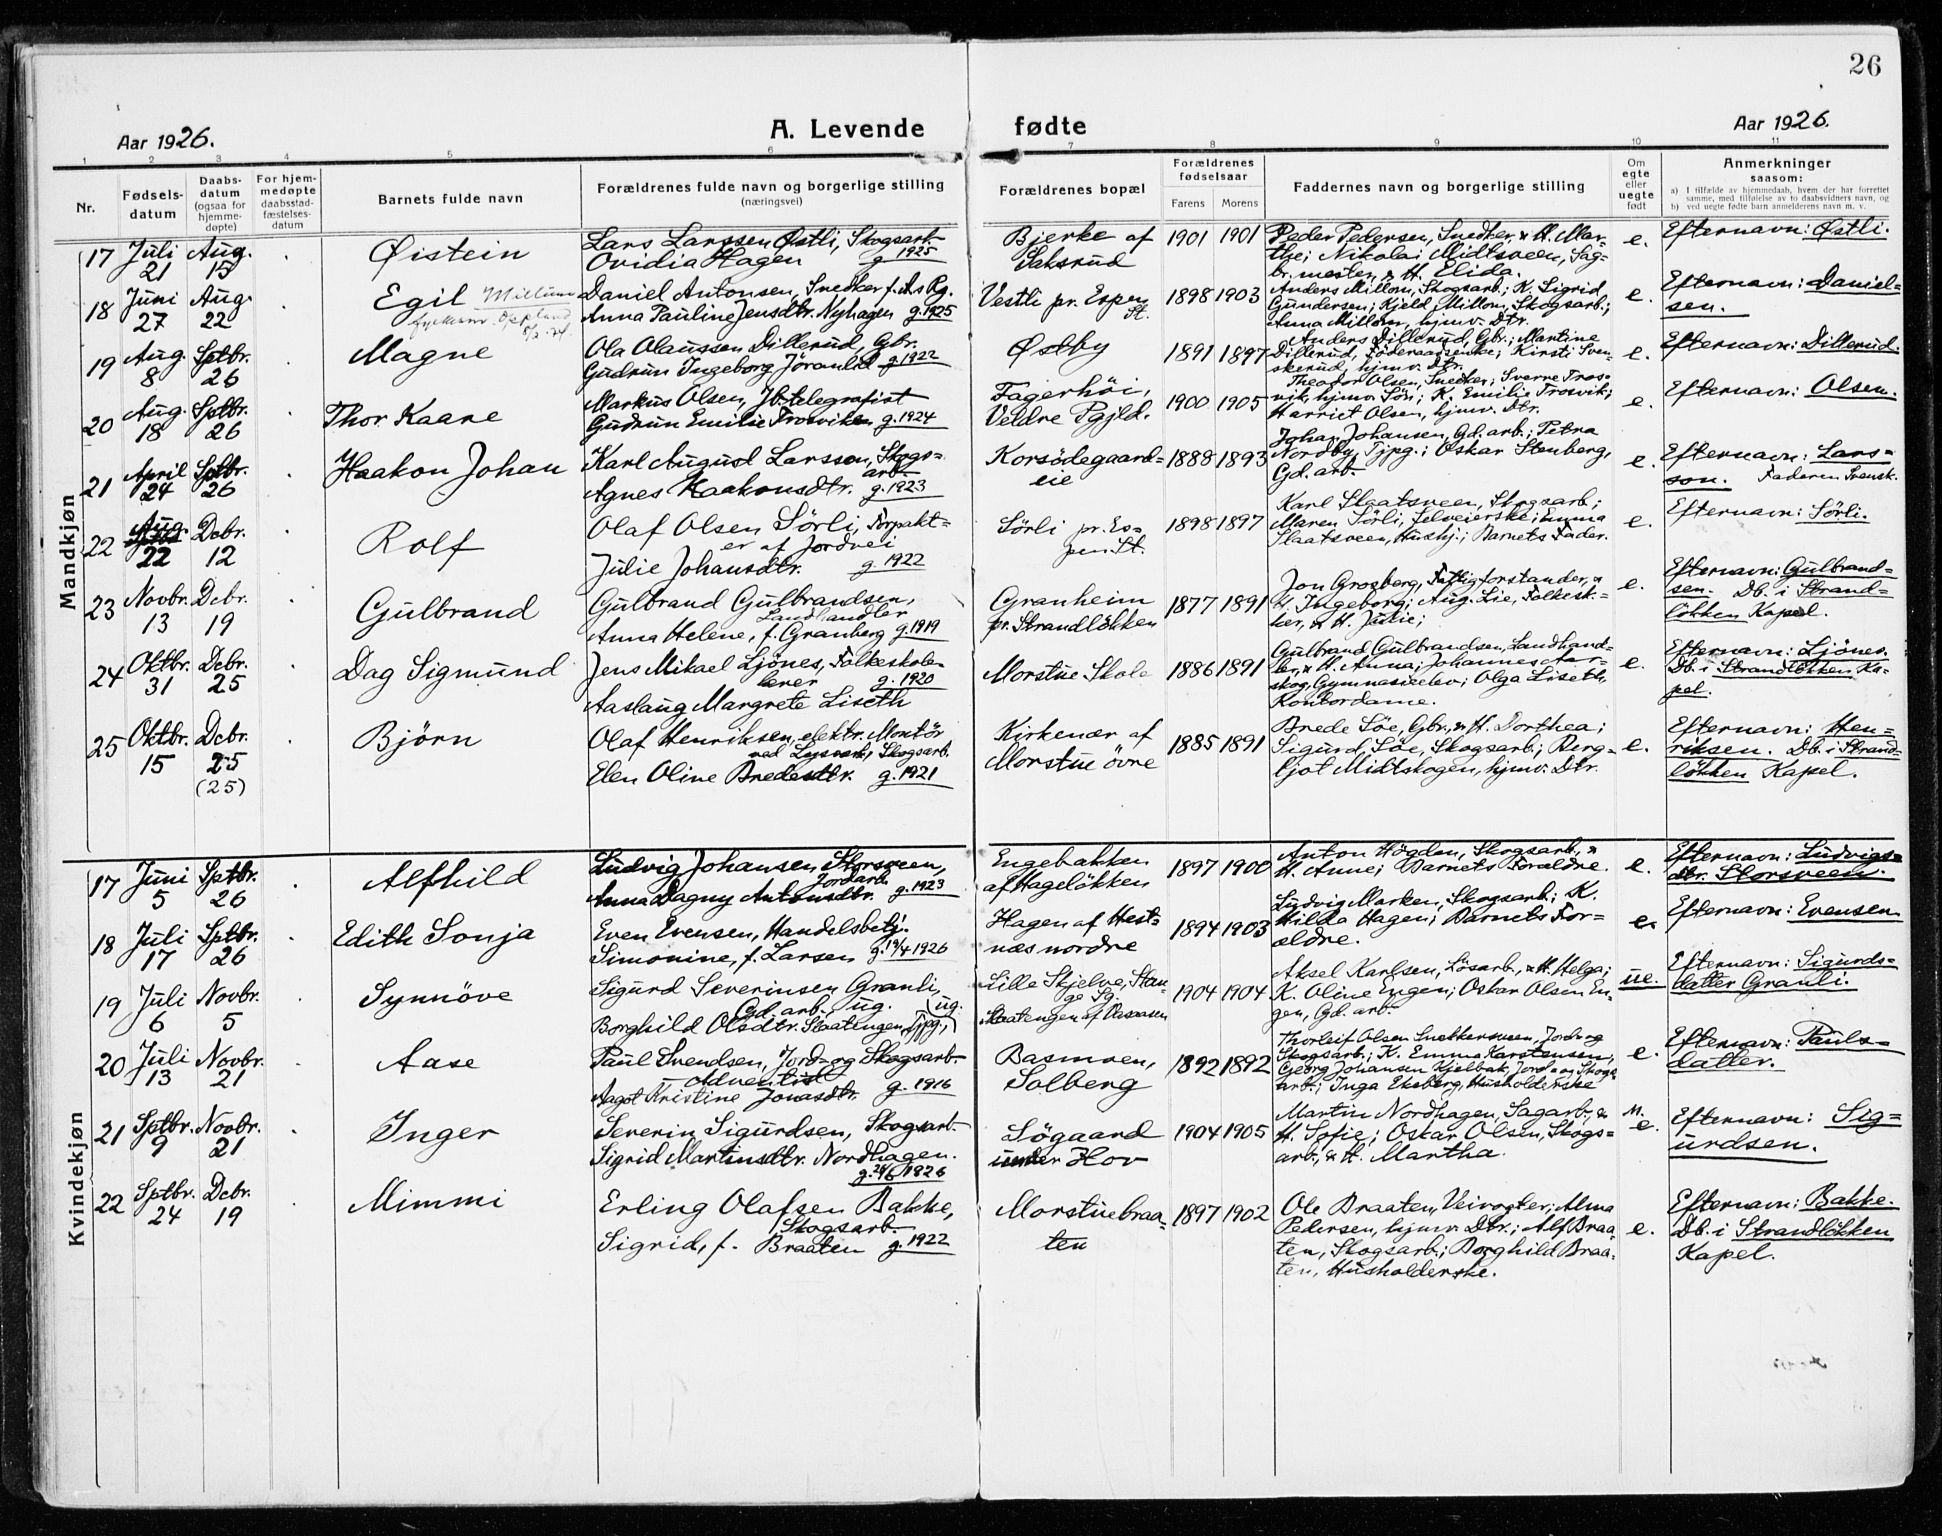 26
Aar 1926.
A. Levende fødte
Aar 1926.
1 2 3 4 5 6 7 8 9 10 11
Nr.
Fødsels-
datum
Daabs-
datum
(ogsaa for
hjemme-
døpte)
For hjem-
medøpte
daabsstad-
fæstelses-
datum
Barnets fulde navn
Forældrenes fulde navn og borgerlige stilling
(næringsvei)
Forældrenes bopæl
Forældrenes
fødselsaar
Farens Morens
Faddernes navn og borgerlige stilling
Om
egte
eller
uegte
født
Anmerkninger
saasom:
a) I tilfælde av hjemmedaab, hvem der har forrettet
samme, med tilføielse av to daabsvidners navn, og
b) ved uegte fødte barn anmelderens navn m. v.
Mandkjøn
17
Juli
21
Aug.
15
Øistein
Lars Larssen Østli, Skogsarb.
Ovidia Hagen g. 1925
Bjerke af
Saksrud
1901 1901
Peder Pedersen, Snedker, & H. Mar-
the; Nikolai Midtsveen, Sag-
br.mester, & H. Elida.
e.
Efternavn: Østli.
18
Juni
27
Aug.
22
Egil Millum
Oppland
Daniel Antonsen, Snedker f. As Pg.
Anna Pauline Jensdtr. Nyhagen g. 1925
Vestli pr. Espen
St.
1898 1903
Anders Millom, Skogsarb.; K. Sigrid
Gundersen; Kjeld Millom, Skogsarb.;
Anna Millom, hjmv. Dtr.
e.
Efternavn: Daniel-
sen.
19
Aug.
8
Sptbr.
26
Magne
Ola Olaussen Dillerud, Gbr.
Gudrun Ingeborg Jöranlid g. 1922
Østby
1891 1897
Anders Dillerud, Gbr.; Martine
Dillerud, Föderaadsenke; Kirsti Sven-
skerud, hjmv. Dtr.
e.
Efternavn: Dillerud.
20
Aug.
18
Sptbr.
26
Thor Kaare
Markus Olsen, Jb.telegrafist
Gudrun Emilie Trosviken g. 1924
Fagerhöi,
Veldre Pgjld.
1900 1905
Theodor Olsen, Snedker; Sverre Tros-
vik, hjmv. Sön; K. Emilie Trosvik;
Harriet Olsen, hjmv. Dtr.
e.
Efternavn: Olsen.
21
April
24
Sptbr.
26
Haakon Johan
Karl August Larsson, Skogs-
arb.
Agnes Haakonsdtr. g. 1923
Korsödegaard-
eie
1888 1893
Johan Johansen, Gd. arb.; Petra
Nordby, Tjpg.; Oskar Stenberg,
Gd. arb.
e.
Efternavn: Lars-
son. Faderen Svensk.
22
Aug.
22
Debr.
12
Rolf
Olaf Olsen Sörli, Forpakt-
er af Jordvei
Julie Johansdtr. g. 1922
Sörli pr. Es-
pen St.
1898 1897
Karl Slaatsveen, Skogsarb.;
Maren Sörli, Selveierske; Emma
Slaatsveen, Hushj.; Barnets Fader.
e.
Efternavn: Sörli.
23
Novbr.
13
Debr.
19
Gulbrand
Gulbrand Gulbrandsen,
Landhandler
Anna Helene, f. Granberg g. 1919
Granheim
pr. Strandlökken
1877 1891
Jon Grosberg, Fattigforstander, &
H. Ingeborg; Aug. Lie, Falkisk-
ker, & H. Julie;
e.
Efternavn: Gulbrand-
sen. Db. i Strand-
lökken Kapel.
24
Oktbr.
31
Debr.
25
Dag Sigmund
Jens Mikael Ljönes, Folkeskole-
lærer g. 1920
Aaslaug Margrete Liseth
Morstue Skole
1886 1891
Gulbrand Gulbrandsen, Landhand-
ler, & H. Anna; Johannes Aar-
skog, Gymnasieelev; Olga Liseth,
Kontordame.
e.
Efternavn: Ljönes.
Db. i Strandlökken Ka-
pel.
25
Oktbr.
15
Debr.
25
(25)
Björn
Olaf Henriksen, elektr. Montör
ved Lysverk, Skogsarb.
Elen Oline Bredesdtr. g. 1921
Kirkenær af
Morstue övre
1885 1891
Brede Löe, Gbr., & H. Dorthea;
Sigurd Löe, Skogsarb.; Berg-
ljot Midtskogen, hjmv. Dtr.
e.
Efternavn: Hen-
riksen. Db. i Strand-
lökken Kapel.
Kvindekjøn
17
Juni
5
Sptbr.
26
Alfhild
Ludvig Johansen Storsveen,
Jordarb.
Anna Dagny Antonsdtr. g. 1923
Engebakken
af Hagelökken
1897 1900
Anton Högden, Skogsarb., &
H. Anne; Barnets Forældre.
e.
Efternavn: Ludvigs-
dtr. Storsveen.
18
Juli
17
Sptbr.
26
Edith Sonja
Even Evensen, Handelsbetj.
Simonine, f. Larsen g. 19/4 1926
Hagen af Hest-
næs nordre
1894 1903
Ludvig Marken, Skogsarb.; K.
Hilda Hagen; Barnets For-
ældre.
e.
Efternavn: Evensen
19
Juli
6
Novbr.
5
Synnöve
Sigurd Severinsen Granli,
Gd. arb. ug.
Borghild Olsdtr. Slaatengen, Tjpg., (ug.)
Lille Skjelve, Stan-
ge Sg.
Slaatengen af Aasaasen
1904 1904
Aksel Karlsen, Lösarb., & H. Helga;
K. Oline Engen; Oskar Olsen En-
gen, Gd. arb.
ue.
Efternavn: Sigurds-
datter Granli.
20
Juli
13
Novbr.
21
Aase
Paul Svendsen, Jord- og Skogsarb.
Adventist
Aagot Kristine Jonasdtr. g. 1916
Basmoen,
Solberg
1892 1892
Thorleif Olsen Snekkersveen, Jord- og
Skogsarb.; K. Emma Karstensen;
Georg Johansen Kjelbak, Jord- og Skogs-
arb.; Inga Ekeberg, Husholderske
e.
Efternavn: Pauls-
datter.
21
Sptbr.
9
Novbr.
21
Inger
Severin Sigurdsen, Skogsarb.
Sigrid Martinsdtr. Nordhagen.
g. 26/6 1926
Lögaard
under Hov
1904 1905
Martin Nordhagen, Sagarb., &
H. Sofie; Oskar Olsen, Skogs-
arb., & H. Martha.
M.
e.
Efternavn: Sig-
urdsen.
22
Sptbr.
24
Debr.
19
Mimmi
Erling Olafsen Bakke,
Skogsarb.
Sigrid, f. Braaten g. 1922
Morstuebraa-
ten
1897 1902
Ole Braaten, Veivogter; Alma
Pedersen, hjmv. Dtr.; Alf Braa-
ten, Skogsarb.; Borghild Braa-
ten, Husholderske.
e.
Efternavn: Bakke.
Db. i Strandlökken
Kapel.